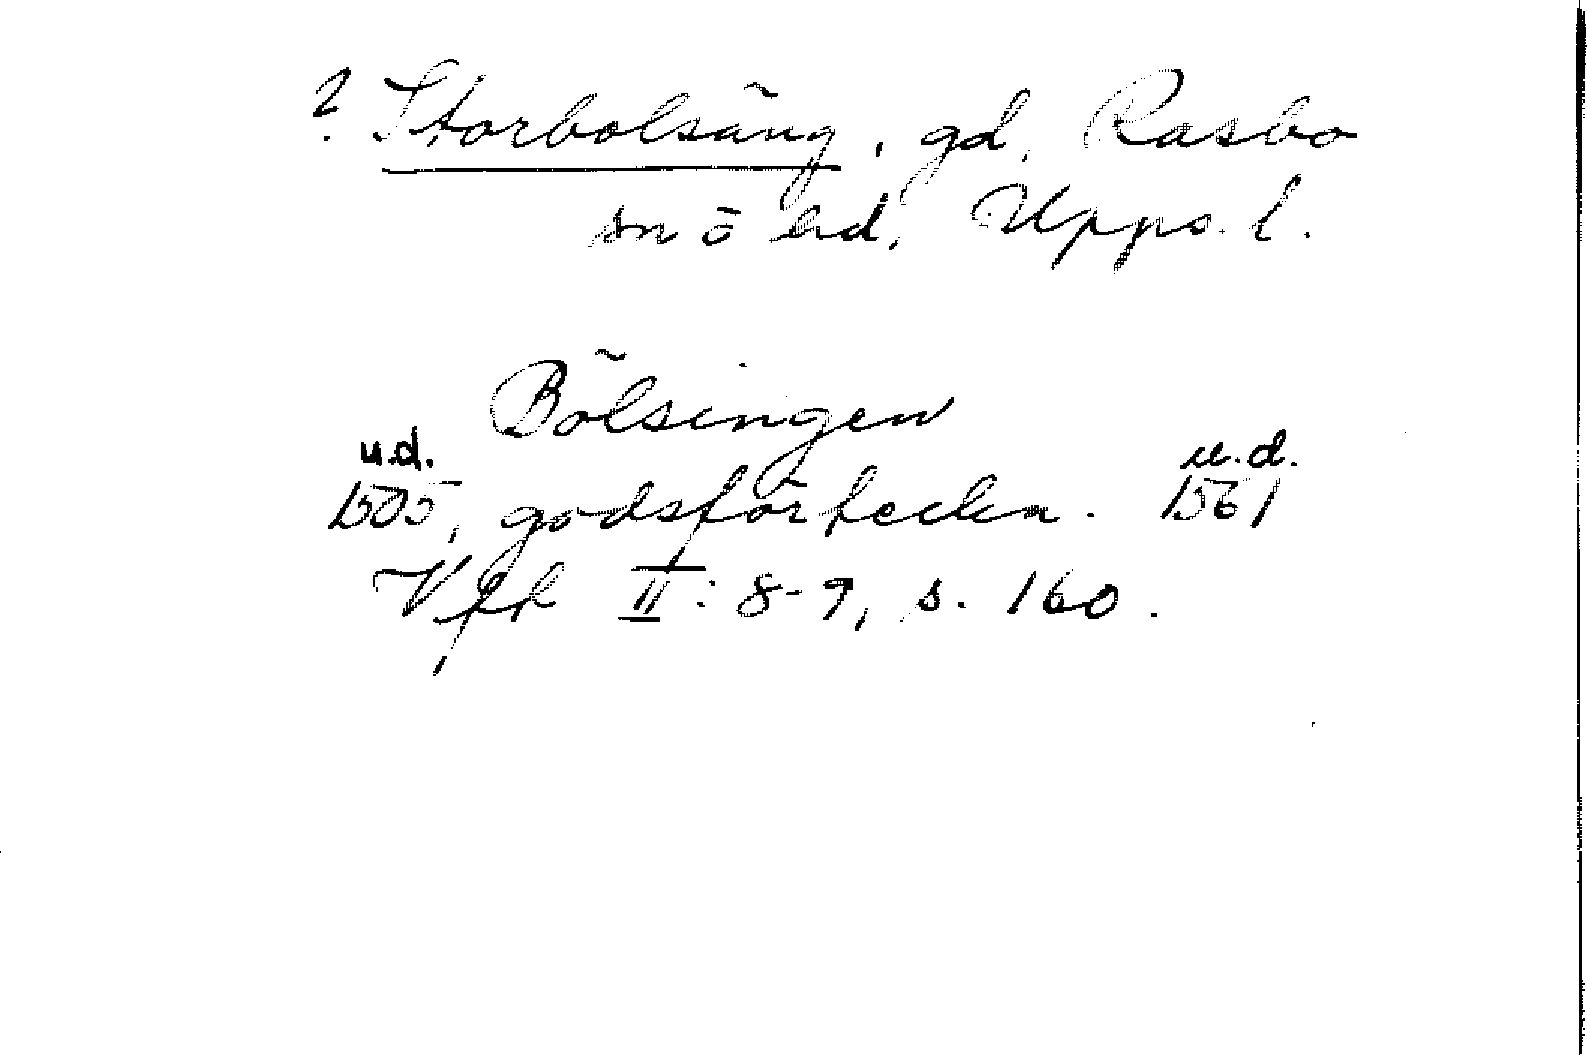 ? Storbolsäng, gd, Rasbo
sn o hd, Upps. l.
Bölsingen
u.d. u.d.
1505, godsförteckn. 1561
Vfk II: 8-9, s. 160.